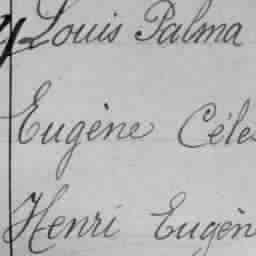 Louis Palma
Eugène Céle
Henri Eugèn